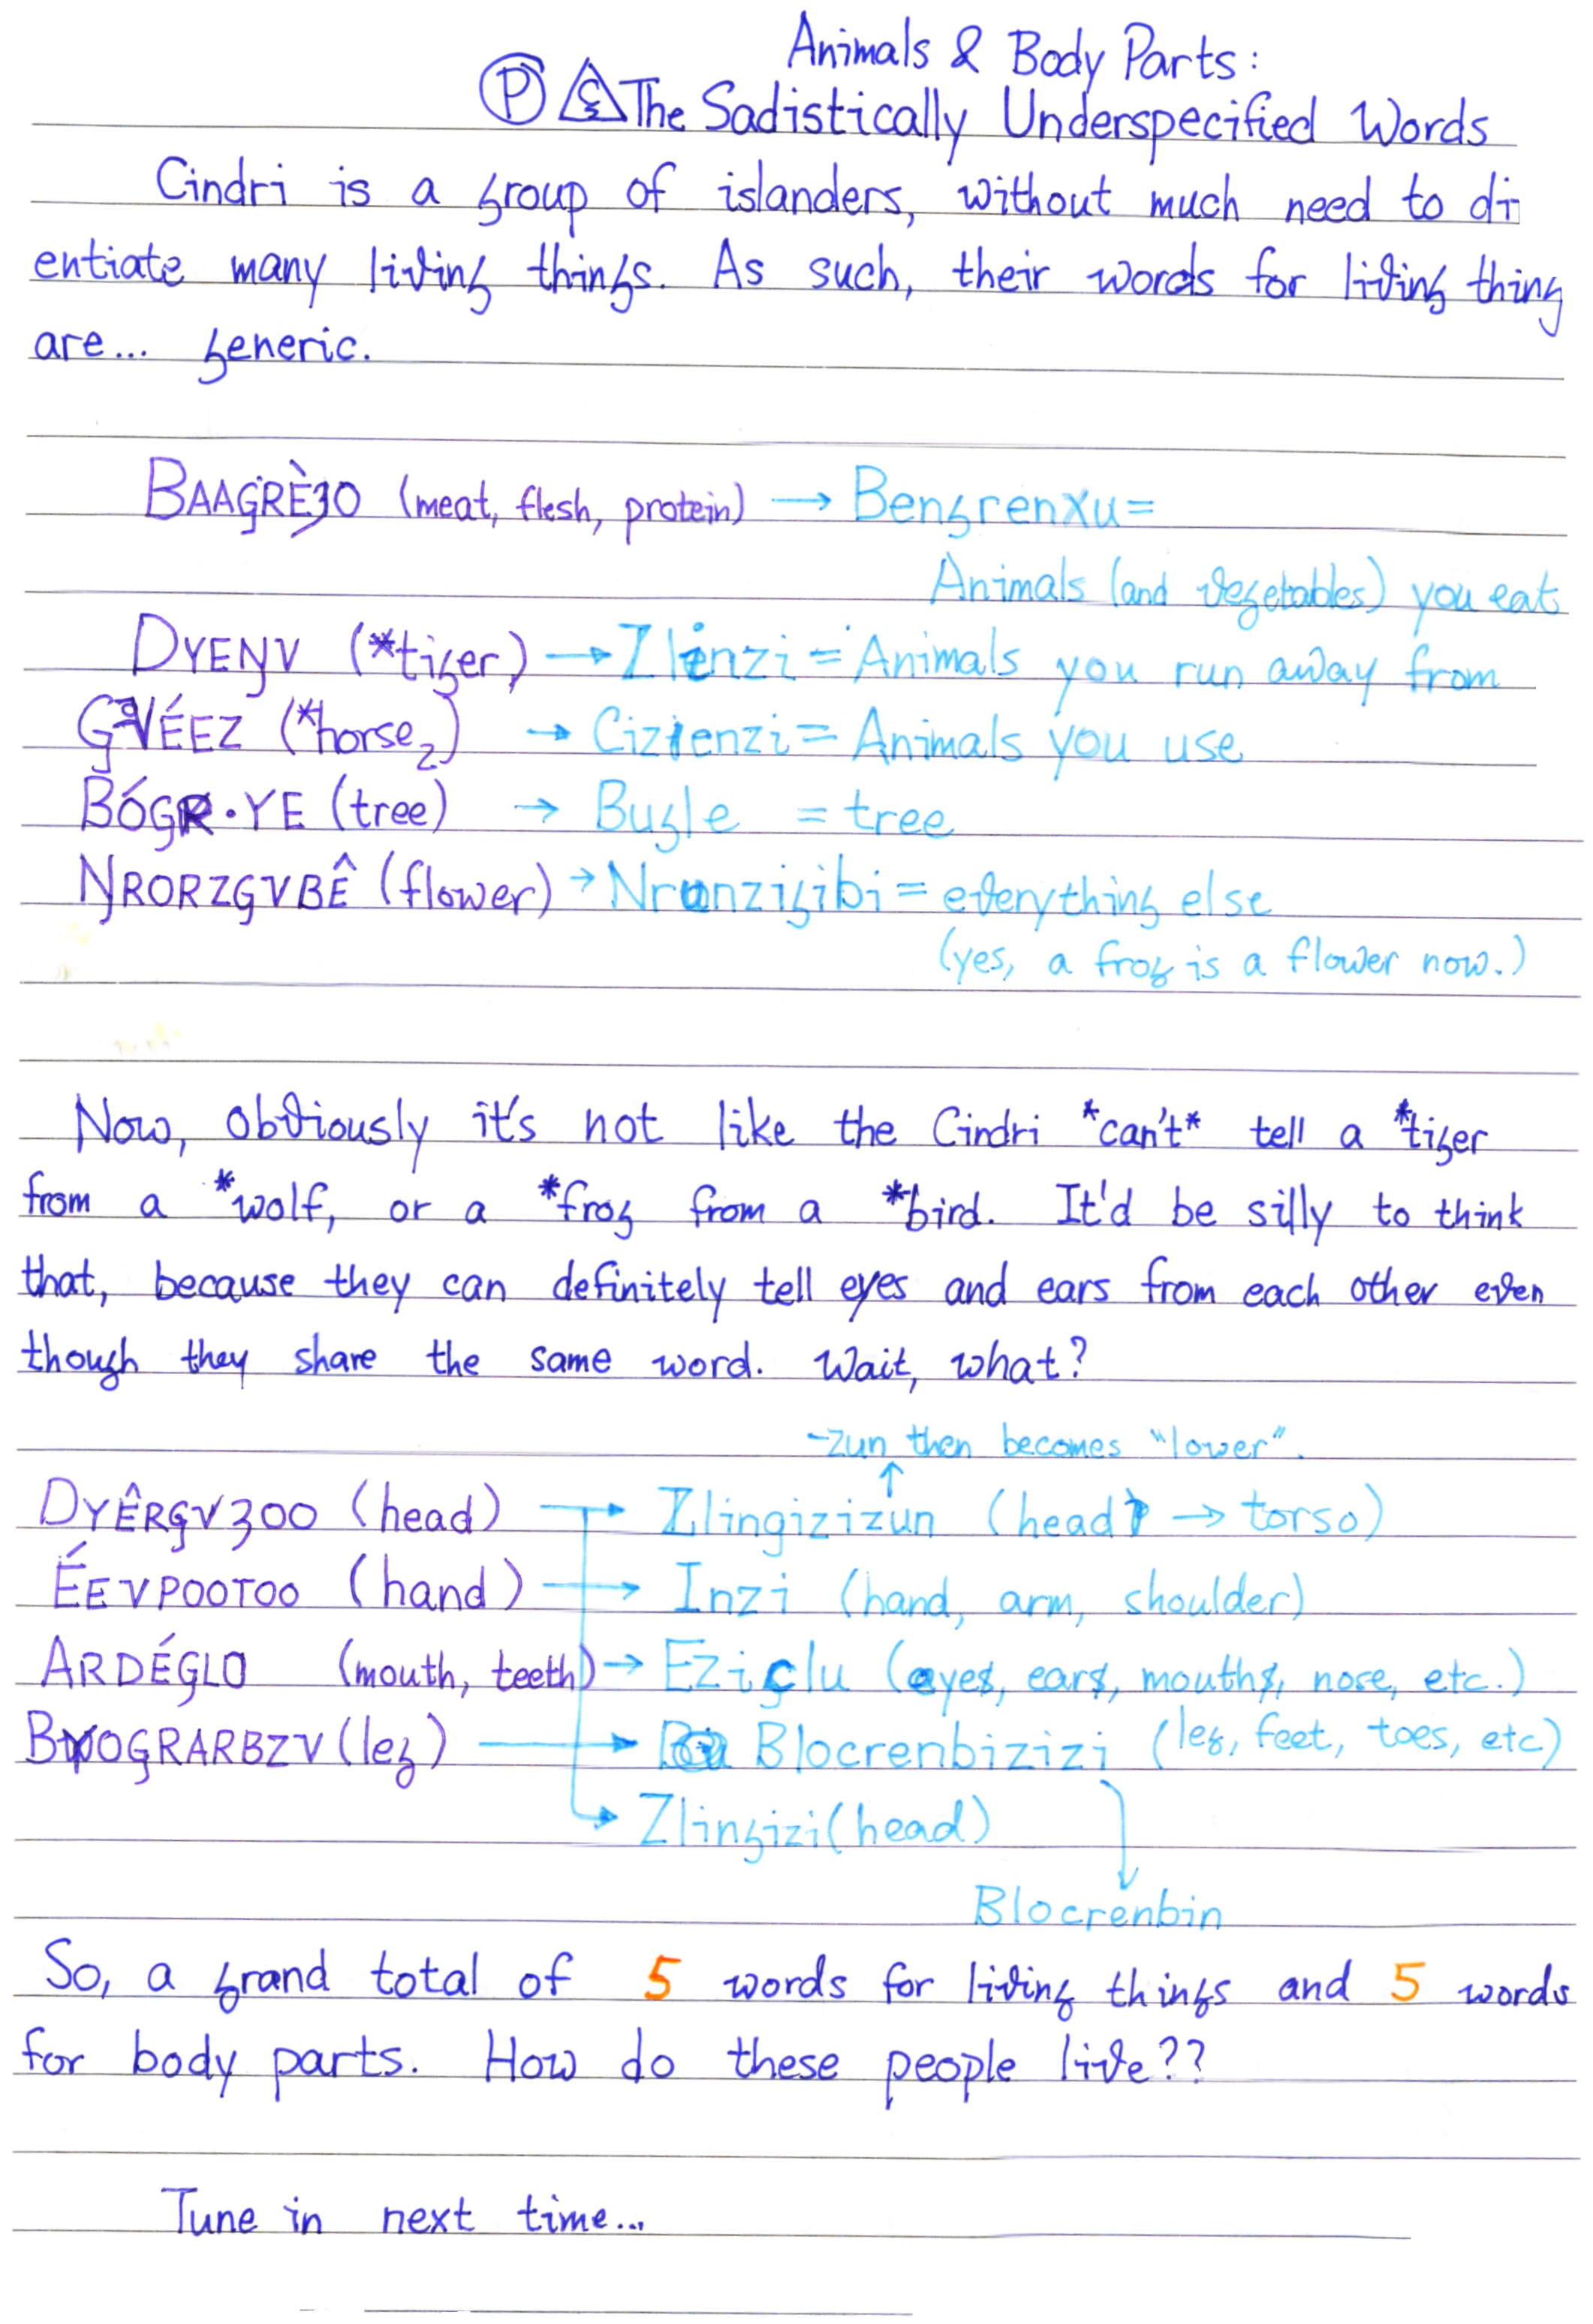 Animals & Body Parts:
Ⓟ The Sadistically Underspecified Words
Cindri is a group of islanders, without much need to di
entiate many living things. As such, their words for living thing
are... generic.
BAAGRÈƷO (meat, flesh, protein) → Bengrenxu =
Animals (and vegetables) you eat
DYENV (*tiger) → Zlenzi = Animals you run away from
GVÉEZ (*horse₂) → Cizienzi = Animals you use
BÓGR·YE (tree) → Bugle = tree
ŊRORZGVBÊ (flower) → Nrunzigibi = everything else
(yes, a frog is a flower now.)
Now, obviously it's not like the Cindri *can't* tell a *tiger
from a *wolf, or a *frog from a *bird. It'd be silly to think
that, because they can definitely tell eyes and ears from each other even
though they share the same word. Wait, what?
-zun then becomes "lower".
DYÊRGVƷOO (head) → Zlingizizun (head → torso)
ÉEVPOOTOO (hand) → Inzi (hand, arm, shoulder)
ARDÉGLO (mouth, teeth) → Eziclu (eyes, ears, mouths, nose, etc.)
BYOGRARBZV (leg) → Blocrenbizizi (leg, feet, toes, etc)
Zlingizi (head)
Blocrenbin
So, a grand total of 5 words for living things and 5 words
for body parts. How do these people live??
Tune in next time...